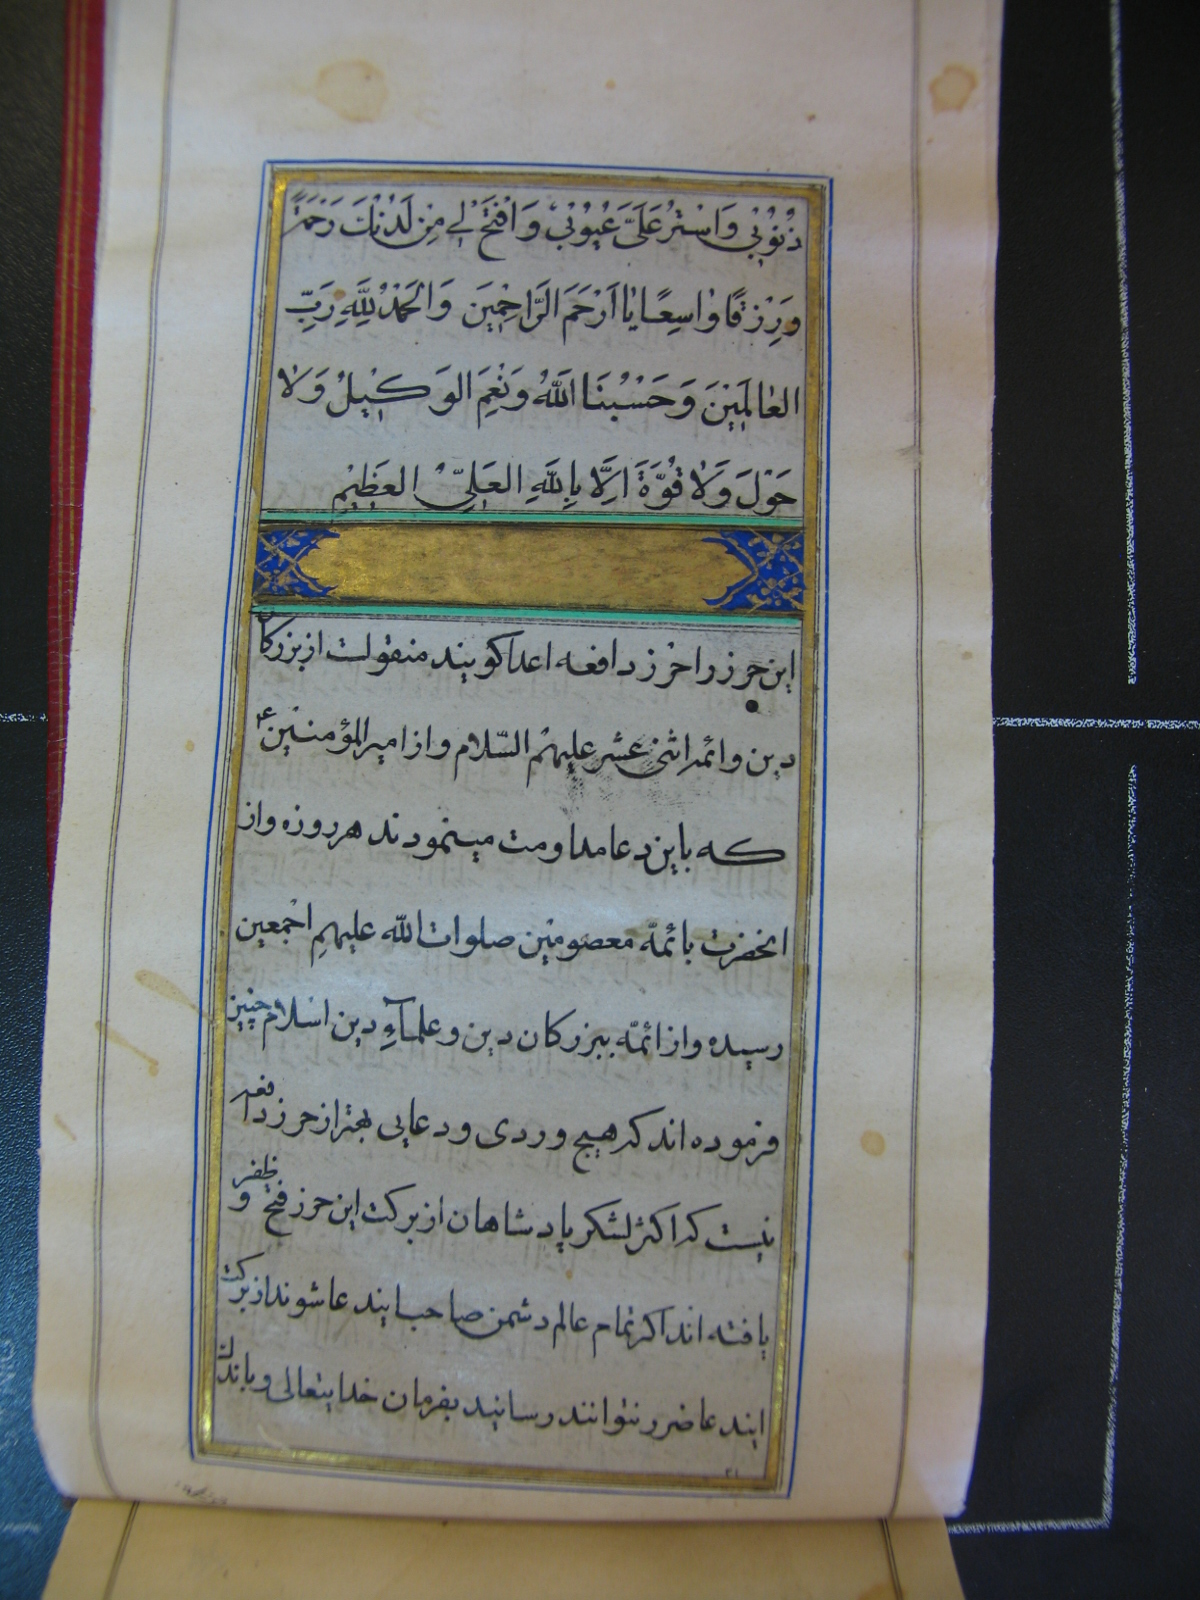 ذُنُوْبِي وَاسْتُرْ عَلَيَّ عُيُوْبِي وَافْتَحْ لِي مِنْ لَدُنْكَ رَحْمَةً
وَرِزْقًا وٰاسِعًا يٰا اَرْحَمَ الرَّاحِمِيْنَ وَالْحَمْدُ لِلَّهِ رَبِّ
العٰالَمِيْنَ وَحَسْبُنَا اللّٰهُ وَنِعْمَ الوَكِيْلُ وَلٰا
حَوْلَ وَلٰا قُوَّةَ اِلَّا بِاللّٰهِ العَلِيِّ العَظِيْمِ
این حرز را حرز دافعه اعدا کویند منقولست از بزرکان
دین و ائمه اثنی عشر علیهم السّلام و از امیر المؤمنین ع
که باین دعا مداومت مینمودند هر روزه و از
انحضرت بائمّه معصومین صلوات اللّه علیهم اجمعین
رسیده و از ائمّه ببزرکان دین و علمآءِ دین اسلام چنین
فرموده اند که هیچ وردی و دعایی بهتر از حرز دافعه
نیست که اکثر لشکر پادشاهان از برکت این حرز فتح و ظفر
یافته اند اکر تمام عالم دشمن صاحب ایند عا شوند از برکت
ایند عا ضرر نتوانند رسانید بفرمان خدایتعالی و باندک